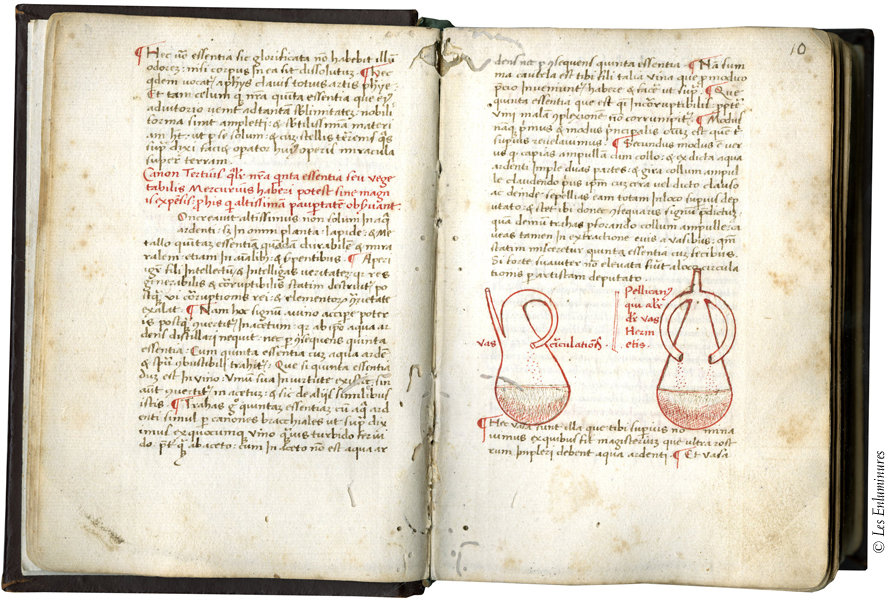 ¶Hec essentia sic glorificata nō habebit illū
odorez: nisi corpus in ea sit dissolutuz. ¶Hec
qdem vocat aphys clavis totius artis phye.
Et tam celum q nrā quīta essentia que eī
adiutorio venit ad tantam sblimitatez: nobili
torma sint amplecti: & sbtilissimam materi
am ht: ut p se solum: & cuz stellis
supra dixi facies opator huī operis miracula
super terram.
Canon Tertius. qlr nrā qnta essentia seu vege
tabilis Mercurius haberi potest sine mag
is expēsis: phis q altissimam paupertatē obsūant.
Oncreavit altissimus non solum in aq
ardenti: sz in omni planta: lapide: & Me
tallo quītaz essentiaz quādā durabilē & mira
ralem etiam in aīalibus: & serpentibus. ¶Aperi
igr fili Intellectū & Intelligas veritatez: q res
generabilis & corruptibilis statim destruit po
stq vi corruptionis rei: & elementorz
exalat. ¶Nam hoc signum a vino accipit poter
is postq vertit in acetum: qz ab ipo aqua ar
dens distillari nequit: nec p qsequens quinta
essentia: Cum quinta essentia cuz aqua ardē
& spū qbustibili trahit. ¶Que si quinta essentia
duz est in vino: Vinū sua in virtute existe: sin
aut vertit in acetuz: & sic de alijs similibus
istis. ¶Trahas g quintaz essentiaz cū aq ard
enti simul p canones brachiales ut sup dixi
mus ex quocumq vino quis turbido
do. pt q ab aceto: cum in aceto nō est aqua ar
10
dens nec p qsequens quinta essentia. ¶Na sum
ma cautela est tibi fili talia vina que p modico
pcio inveniunt habere & face ut supra. ¶Que
quinta essentia que est qi incorruptibilis ppter
Vini malā qplexione nō corrumpit. ¶Modus
naq primus & modus principalis est que t
supius revelavimus. ¶Secundus modus ē ver
us q capias ampullā cum collo: & ex dicta aqua
ardenti imple duas partes: & gira collum ampul
le claudendo pus ipm cuz cera vel dicto clauso
ac deinde sepellias eam totam in loco supius dep
utato: & stet ibi donec qsequaris signū pdictuz.
qua demū trahas pforando collum ampulle: ca
veas tamen in extractione eius a vasibus: qm
statim miscetur quinta essentia cuz fecibus.
Si forte suaviter nō elevata fiūt a loco circula
tionis p artistam deputato.
Pellicanus
qui alr
dr vas
Her
etis.
vas circulationis
¶Hec vasa sunt illa que tibi supius no mina
vimus ex quibus fit magisteriuz que ultra rost
rum impleri debent aqua ardenti. ¶Et vasa
© Les Enluminures